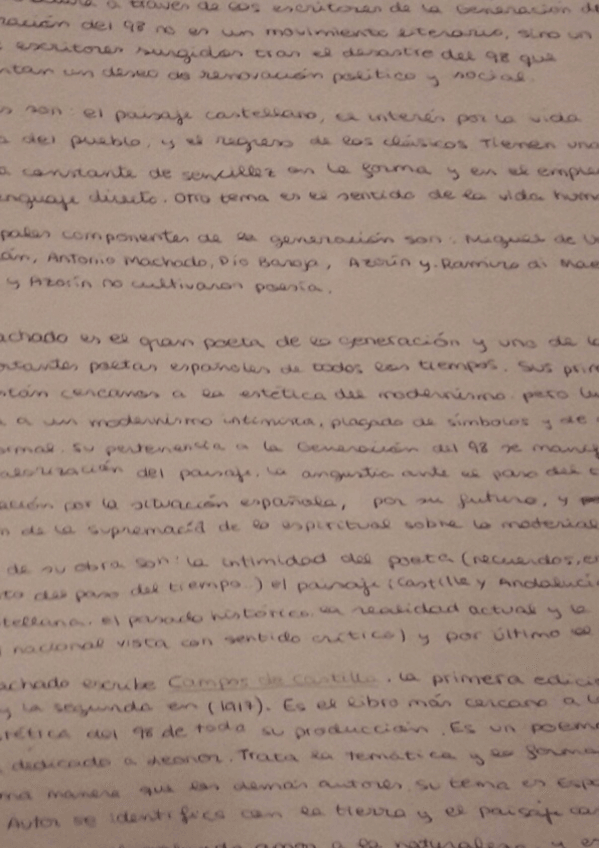 a través de los escritores de la Generación d
ración del 98 no es un movimiento literario, sino un
escritores surgidos tras el desastre del 98 que
ntan un deseo de renovación político y social.
s son: el paisaje castellano, el interés por la vida
a del pueblo, y el regreso de los clásicos Tienen una
a constante de sencillez en la forma y en el emple
enguaje directo. Otro tema es el sentido de la vida hum
pales componentes de la generación son: Miguel de U
án, Antonio Machado, Pío Baroja, Azorín y Ramiro di Mae
y Azorín no cultivaron poesía.
achado es el gran poeta de la generación y uno de l
ortantes poetas españoles de todos los tiempos. Sus prim
stán cercanos a la estética del modernismo pero lu
a a un modernismo intimista, plagado de símbolos y de
ormal. Su pertenencia a la Generación del 98 se manif
alorización del paisaje, la angustia ante el paso del t
ación por la situación española, por su futuro, y
n de la supremacía de lo espiritual sobre lo material
de su obra son: la intimidad del poeta (recuerdos, e
to del paso del tiempo) el paisaje (Castilla y Andalucí
tellana. el pasado histórico la realidad actual y la
nacional vista con sentido crítico) y por último el
achado escribe Campos de Castilla. la primera edici
y la segunda en (1917). Es el libro más cercano a l
tética del 98 de toda su producción. Es un poema
dedicado a Leonor. Trata la temática y la forma
ma manera que los demás autores. su tema es Esp
Autor se identifica con la tierra y el paisaje ca
amor a la naturaleza y e